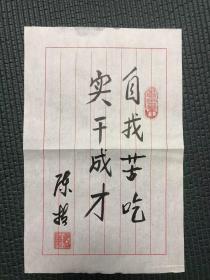 自找苦吃
实干成才
陈哲